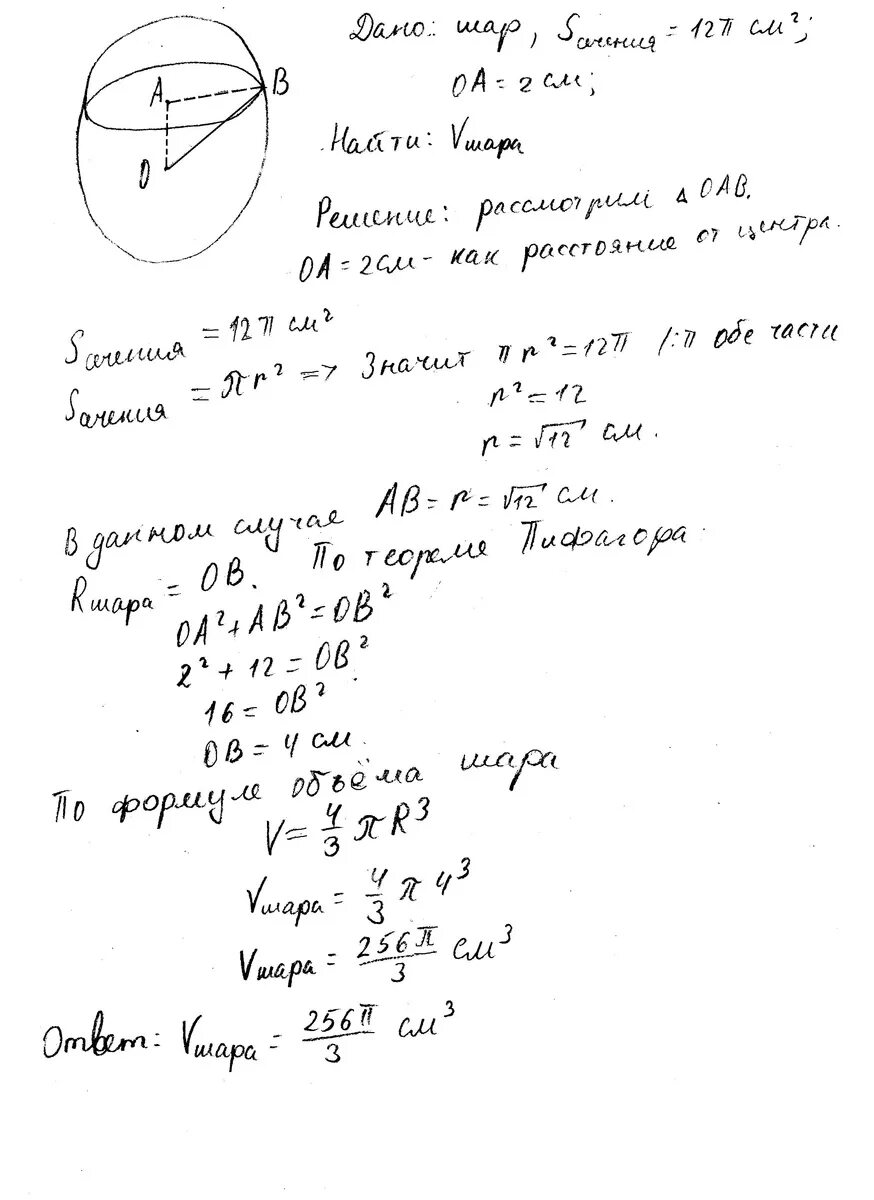 A
B
O
Дано: шар, Sсечения = 12π см²;
OA = 2 см;
Найти: Vшара
Решение: рассмотрим Δ OAB.
OA = 2 см - как расстояние от центра.
Sсечения = 12π см²
Sсечения = πr² => Значит πr² = 12π /:π обе части
r² = 12
r = √12 см.
В данном случае AB = r = √12 см.
Rшара = OB. По теореме Пифагора
OA² + AB² = OB²
2² + 12 = OB²
16 = OB²
OB = 4 см.
По формуле объёма шара
V = 4/3 πR³
Vшара = 4/3 π 4³
Vшара = 256π/3 см³
Ответ: Vшара = 256π/3 см³